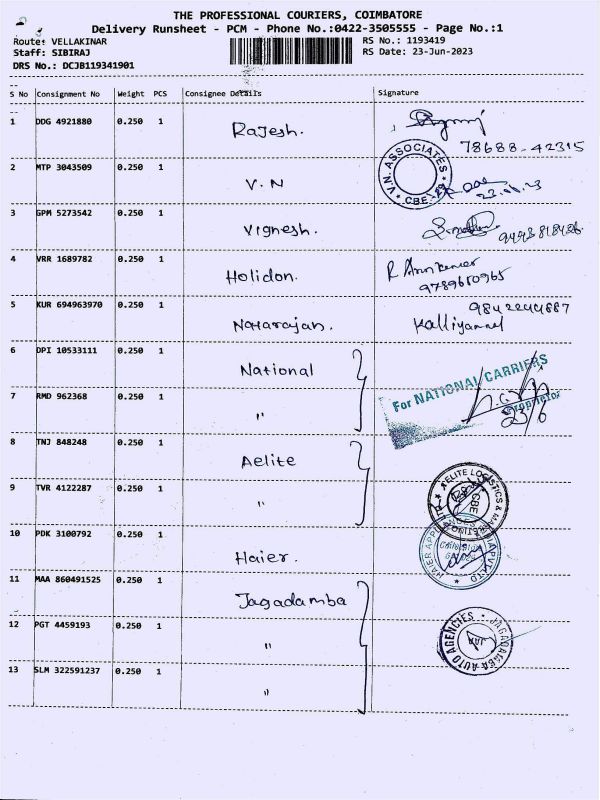 THE PROFESSIONAL COURIERS, COIMBATORE
Delivery Runsheet - PCM - Phone No.:0422-3505555 - Page No.:1
Route: VELLAKINAR
RS No.: 1193419
Staff: SIBIRAJ
RS Date: 23-Jun-2023
DRS No.: DCJB119341901
S No Consignment No Weight PCS Consignee Details Signature
1 DDG 4921880 0.250 1 Rajesh.
78688-42315
2 MTP 3043509 0.250 1 V.N
V.N. ASSOCIATES * CBE-29 *
3 GPM 5273542 0.250 1 Vignesh.
4 VRR 1689782 0.250 1 Holidon.
9789610965
5 KUR 694963970 0.250 1 Natarajan.
9842244887
Kalliyammal
6 DPI 10533111 0.250 1 National
For NATIONAL CARRIERS
Proprietor
23/6
7 RMD 962368 0.250 1 "
8 TNJ 848248 0.250 1 Aelite
ELITE LOGISTICS & MARKETING
CBE
9 TVR 4122287 0.250 1 "
10 PDK 3100792 0.250 1 Haier.
HAIER APPLIANCES
11 MAA 860491525 0.250 1 Jagadamba
JAGADAMBA AUTO AGENCIES
12 PGT 4459193 0.250 1 "
13 SLM 322591237 0.250 1 "